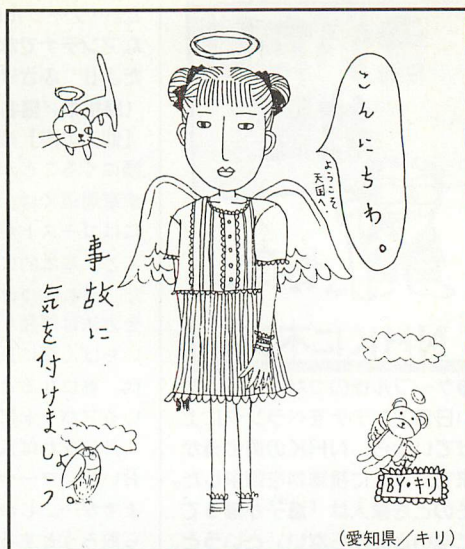 こんにちわ。
ようこそ
天国へ！
事故に
気を付けましょう。
BY・キリ
(愛知県／キリ)